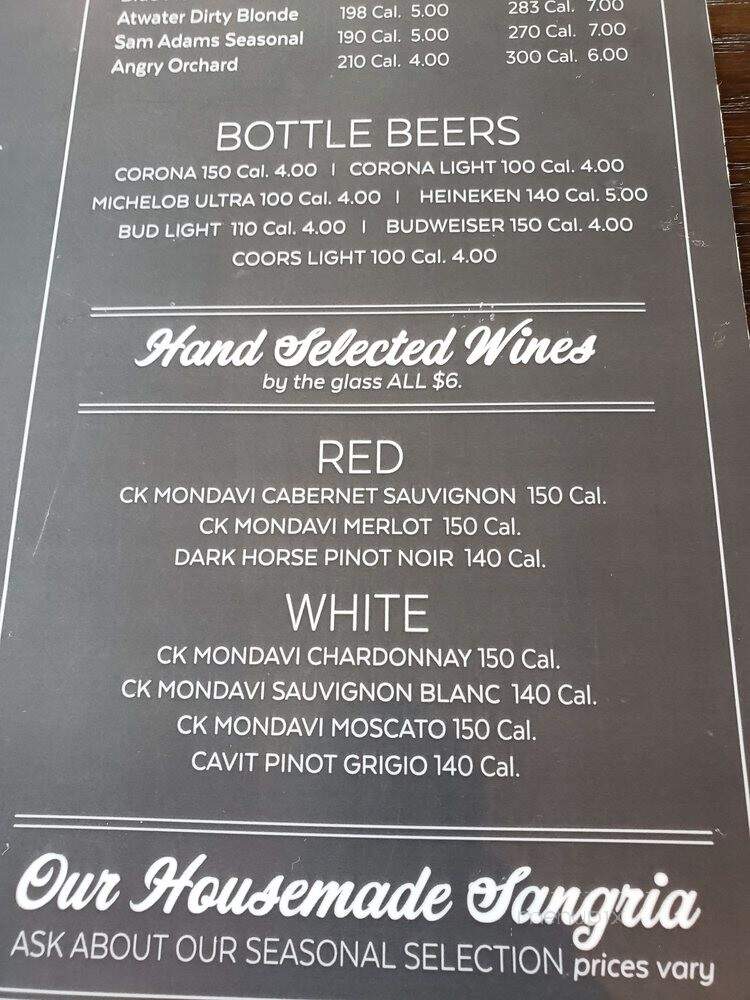 Atwater Dirty Blonde 198 Cal. 5.00 283 Cal. 7.00
Sam Adams Seasonal 190 Cal. 5.00 270 Cal. 7.00
Angry Orchard 210 Cal. 4.00 300 Cal. 6.00
BOTTLE BEERS
CORONA 150 Cal. 4.00 | CORONA LIGHT 100 Cal. 4.00
MICHELOB ULTRA 100 Cal. 4.00 | HEINEKEN 140 Cal. 5.00
BUD LIGHT 110 Cal. 4.00 | BUDWEISER 150 Cal. 4.00
COORS LIGHT 100 Cal. 4.00
Hand Selected Wines
by the glass ALL $6.
RED
CK MONDAVI CABERNET SAUVIGNON 150 Cal.
CK MONDAVI MERLOT 150 Cal.
DARK HORSE PINOT NOIR 140 Cal.
WHITE
CK MONDAVI CHARDONNAY 150 Cal.
CK MONDAVI SAUVIGNON BLANC 140 Cal.
CK MONDAVI MOSCATO 150 Cal.
CAVIT PINOT GRIGIO 140 Cal.
Our Housemade Sangria
ASK ABOUT OUR SEASONAL SELECTION prices vary